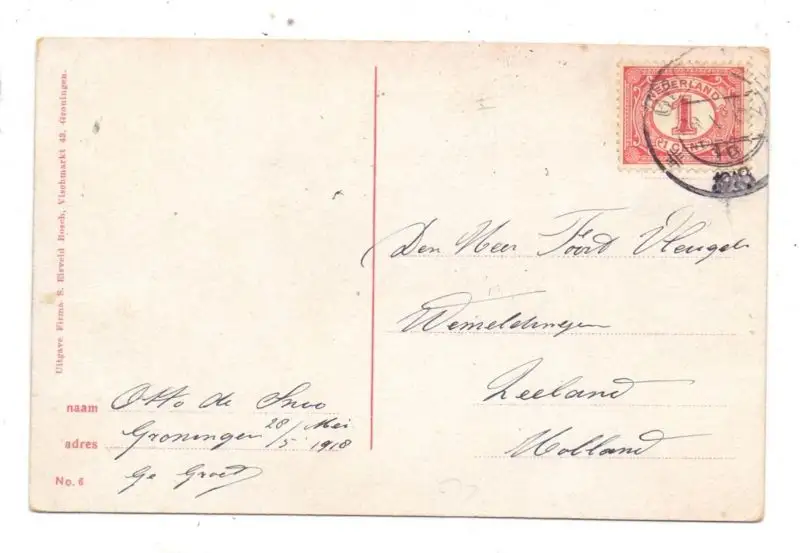 Uitgave Firma S. Elsveld Bosch, Vischmarkt 42, Groningen.
NEDERLAND
1
CENT
1918
Den Heer Foort
Wemeldingen
Zeeland
Holland
naam Otto de
adres Groningen 28/5 Mei 1918
No. 6